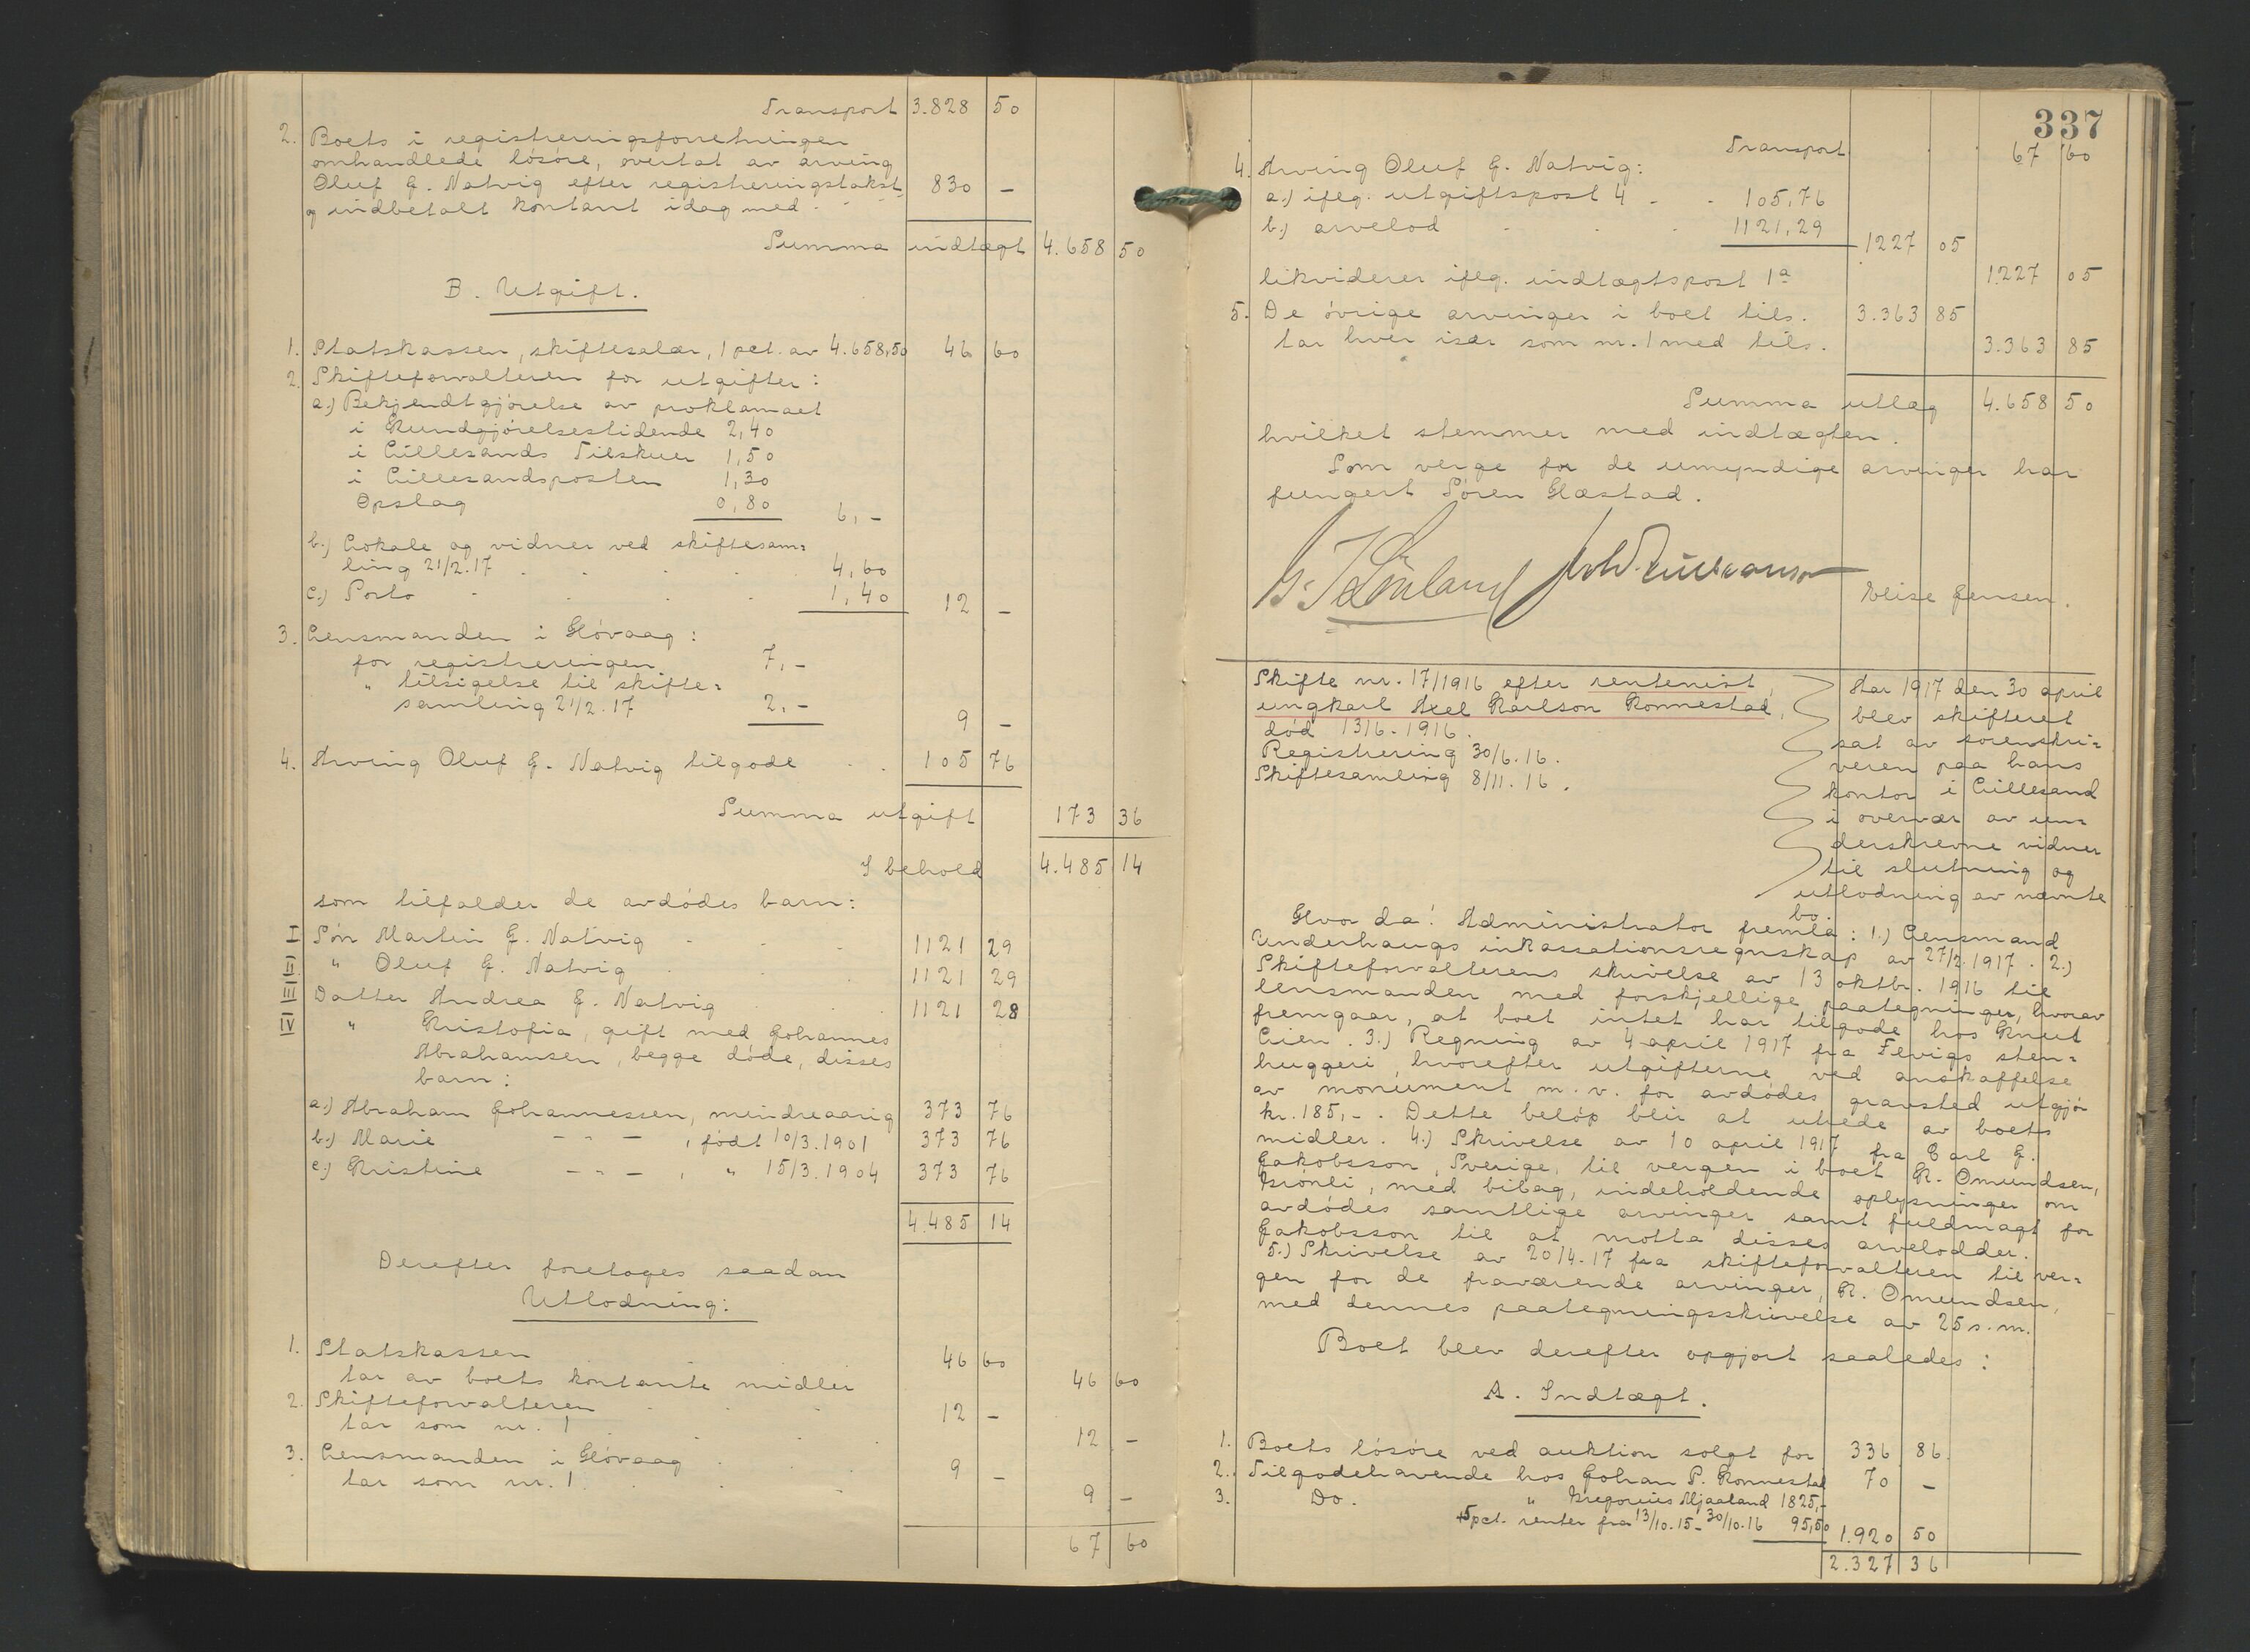 Transport 3.828 50
2. Boets i registreringsforretningen
omhandlede lösöre, overtat av arving
Oluf G. Natvig efter registreringstakst
og indbetalt kontant idag med - - - 830 –
Summa indtægt 4.658 50
B. Utgift.
1. Statskassen, skiftesalær, 1 pct. av 4.658,50 46 60
2. Skifteforvalteren for utgifter:
a.) Bekjendtgjörelse av proklamaet
i Kundgjörelsestidende 2,40
i Lillesands Tilskuer 1,50
i Lillesandsposten 1,30
Opslag 0,80 6,–
b.) Lokale og vidner ved skiftesam=
ling 21/2.17 . . . . 4,60
c.) Porto - . . . 1,40 12 –
3. Lensmanden i Hövaag:
for registreringen 7,–
" tilsigelse til skifte=
samling 21/2.17 2,– 9 –
4. Arving Oluf G. Natvig tilgode . . 105 76
Summa utgift 173 36
I behold 4.485 14
som tilfalder de avdödes barn:
I Sön Martin G. Natvig - . . 1121 29
II " Oluf G. Natvig . . 1121 29
III Datter Andrea G. Natvig . . 1121 28
IV " Kristofia, gift med Johannes
Abrahamsen, begge döde, disses
barn:
a.) Abraham Johannessen, mindreaarig 373 76
b.) Marie – " – , födt 10/3.1901 373 76
c.) Kristine – " – , " 15/3.1904 373 76
4.485 14
Derefter foretoges saadan
Utlodning:
1. Statskassen 46 60
tar av boets kontante midler 46 60
2. Skifteforvalteren . . . 12 –
tar som nr. 1 . . . 12 –
3. Lensmanden i Hövaag . . . 9 –
tar som nr. 1 . . . 9 –
67 60
337
Transport 67 60
4. Arving Oluf G. Natvig:
a.) iflg. utgiftspost 4 - . 105,76
b.) arvelod . . . 1121,29 1227 05
likviderer iflg. indtægtspost 1a 1227 05
5. De övrige arvinger i boet tils. 3.363 85
tar hver især som nr. 1 med tils. 3.363 85
Summa utlæg 4.658 50
hvilket stemmer med indtægten.
Som verge for de umyndige arvinger har
fungert Sören Hæstad.
Elise Jensen.
Skifte nr. 17/1916 efter rentenist,
ungkarl Axel Karlson Konnestad,
död 13/6-1916.
Registrering 30/6.16.
Skiftesamling 8/11.16.
Aar 1917 den 30 april
blev skifteret
sat av sorenskri=
veren paa hans
kontor i Lillesand
i overvær av un=
derskrevne vidner
til slutning og
utlodning av nævnte
bo.
Hvor da! Administrator fremla: 1.) Lensmand
Underhaugs inkassationsregnskap av 27/2.1917. 2.)
Skifteforvalterens skrivelse av 13 oktbr. 1916 til
lensmanden med forskjellige paategninger, hvorav
fremgaar, at boet intet har tilgode hos Knut
Lien. 3.) Regning av 4 april 1917 fra Fevigs sten=
huggeri, hvorefter utgifterne ved anskaffelse
av monument m.v. for avdödes gravsted utgjör
kr. 185,–. Dette belöp blir at utrede av boets
midler. 4.) Skrivelse av 10 april 1917 fra Carl G.
Jakobsson, Sverige, til vergen i boet K. Omundsen,
Grönli, med bilag, indeholdende oplysninger om
avdödes samtlige arvinger samt fuldmagt for
Jakobsson til at motta disses arvelodder.
5.) Skrivelse av 20/4.17 fra skifteforvalteren til ver=
gen for de fraværende arvinger, K. Omundsen,
med dennes paategningsskrivelse av 25 s.m.
Boet blev derefter opgjort saaledes:
A. Indtægt.
1. Boets lösöre ved auktion solgt for 336 86
2. Tilgodehavende hos Johan P. Konnestad 70 –
3. Do. " Gregorius Mjaaland 1825,–
+5 pct. renter fra 13/10.15 – 30/10.16 95,50 1.920 50
2.327 36